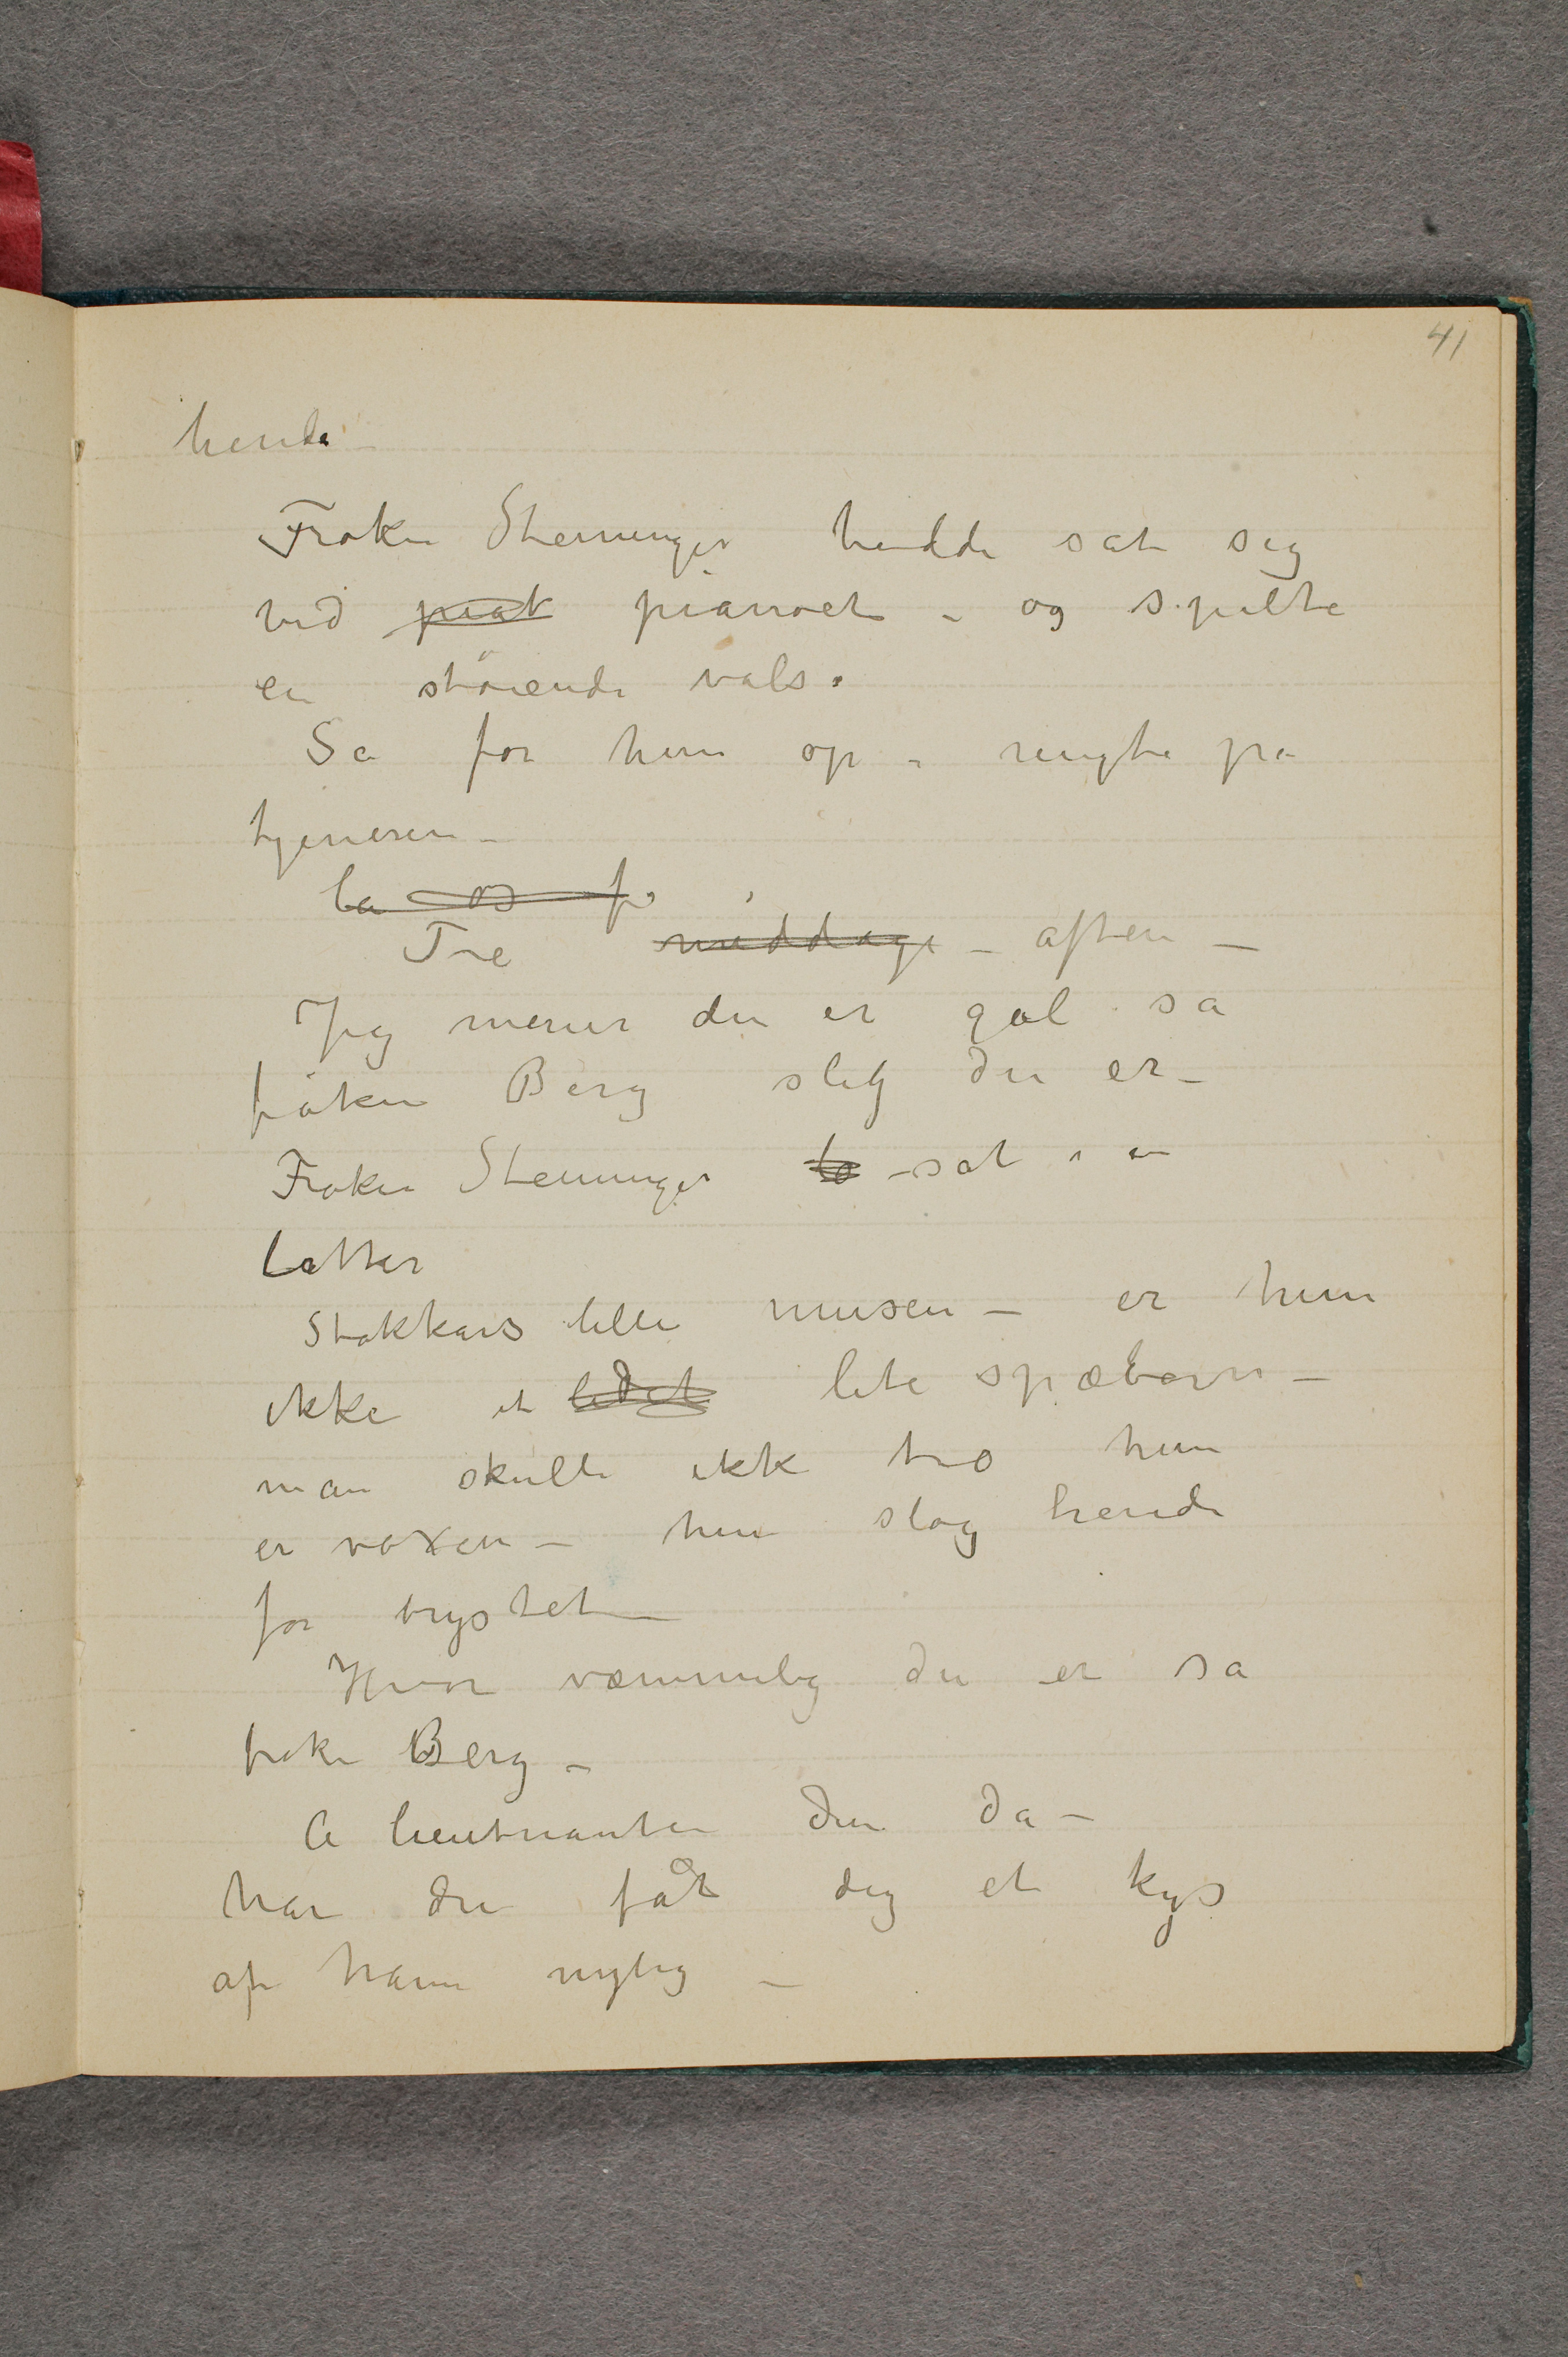 41
hende
Frøken Stenninger hadde sat sig
ved piat pianoet – og spilte
en støiende vals.
Sa for hun op – ringte pa
tjeneren –
La os fa
Tre middage – aften –
Jeg mener du er gal sa
frøken Berg slig du er –
Frøken Stenninger lo – sat i en
Latter
Stakkars lille musen – er hun
ikke et lidet lite spæbarn –
man skulle ikk tro hun
er voxen – hun slog hende
for brystet –
Hvor væmmelig du er sa
frøken Berg –
A lieutnanten din da –
har du fåt dig et kys
af ham nylig –